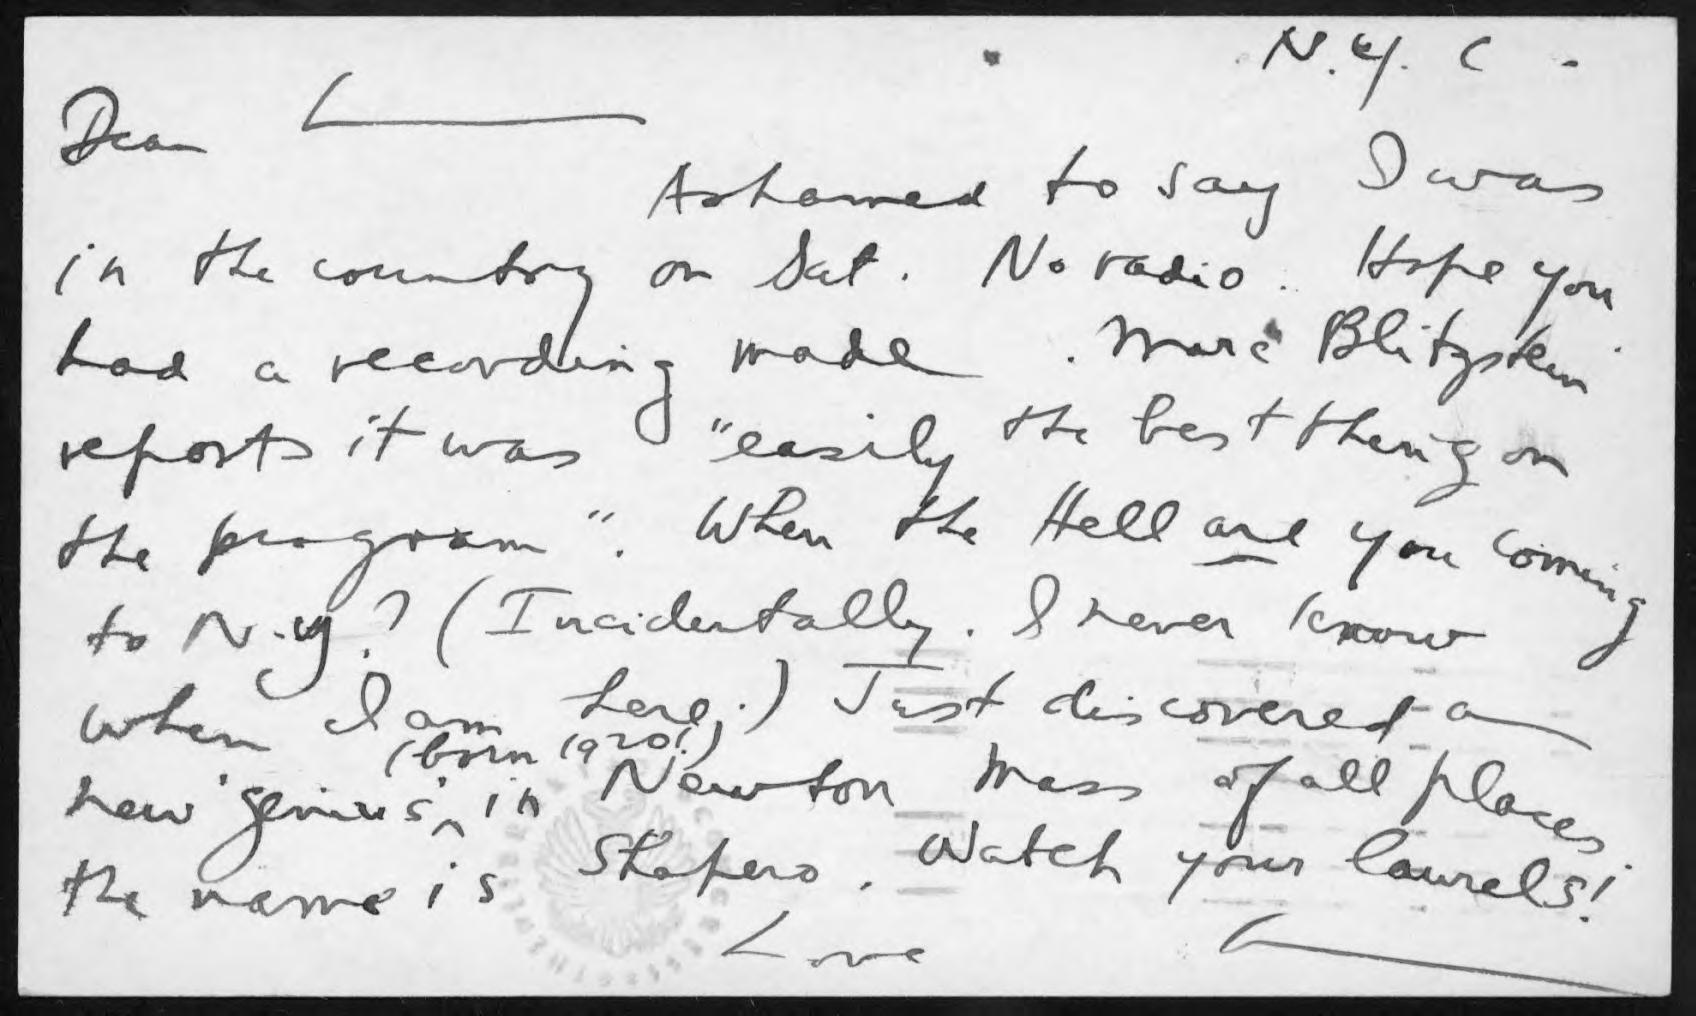 N.Y.C.
Dear L———
Ashamed to say I was
in the country on Sat. No radio. Hope you
had a recording made. Marc Blitzstein
reports it was "easily the best thing on
the program". When the Hell are you coming
to N.Y.? (Incidentally, I never know
when I am here.) Just discovered a
(born 1920!)
new 'genius' in Newton Mass of all places
the name is Shapero. Watch your laurels!
Love